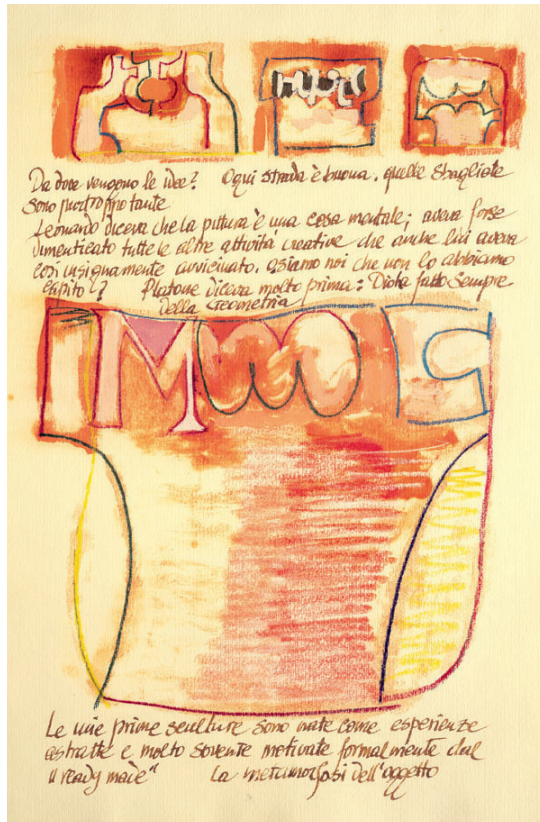 Da dove vengono le idee? Ogni strada è buona. quelle sbagliate
sono purtroppo tante
Leonardo diceva che la pittura è una cosa mentale; aveva forse
dimenticato tutte le altre attività creative che anche lui aveva
così insignamente avvicinato. o siamo noi che non lo abbiamo
capito? Platone diceva molto prima: Dio ha fatto sempre
della Geometria
Le mie prime sculture sono nate come esperienze
astratte e molto sovente motivate formalmente dal
"ready made" La metamorfosi dell'oggetto